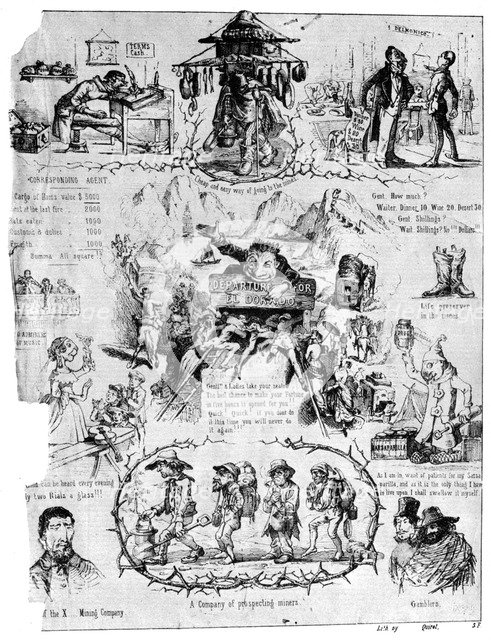 TERMS
Cash
DELMONICO'S
Cheap and easy way of going to the mines
CORRESPONDING AGENT.
Cargo of Hams value $ 5000
at the last fire 2000
Rats eaten 1000
Customs & duties 1000
1000
Summa All square
Gent. How much?
Waiter. Dinner, 10, Wine 20, Desert 30
Gent. Shillings?
Wait. Shillings? No!!! Dollars
DEPARTURE FOR
EL DORADO
Life preserver
in the mines.
MUSIC
Gentn & Ladies take your seats
The best chance to make your Fortune
in five hours is opened for you
Quick! Quick! if you dont do
it this time you will never do
it again!!!
SARSAPARILLA
can be heard every evening
only two Rials a glass!!!
As I am in want of patients for my Sarsa-
parilla, and as it is the only thing I have
to live upon I shall swallow it myself.
of the X. Mining Company
A Company of prospecting miners.
Gamblers.
Lith. by Quirot, S F.